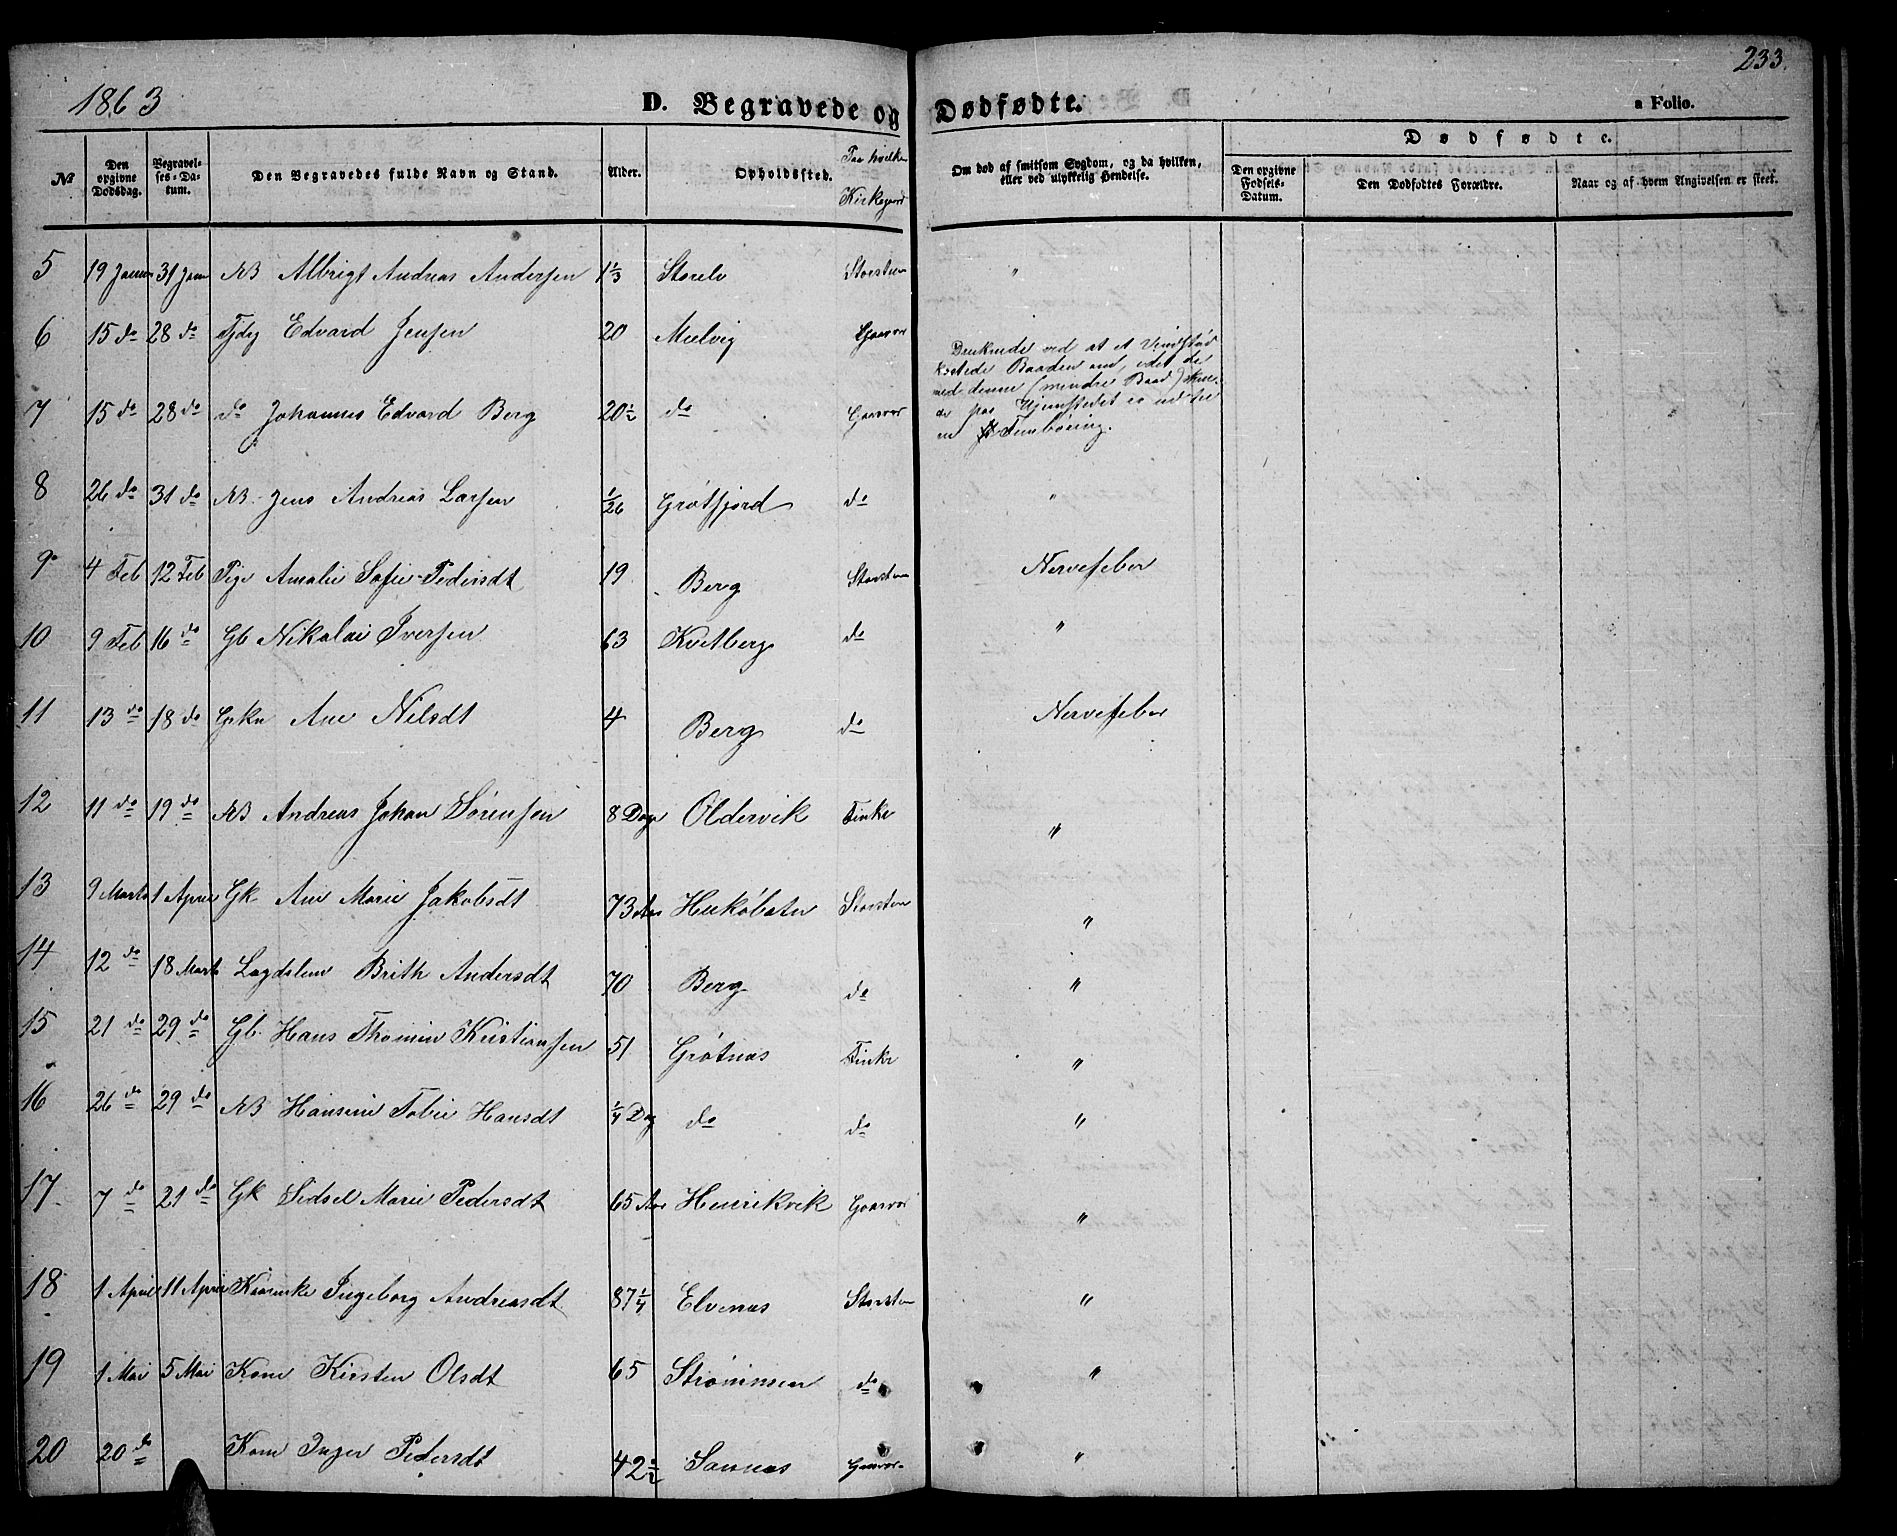 233.
1863
D. Begravede og Dødfødte.
a Folio.
Dødfødte.
No
Den opgivne Dødsdag.
Begravelses-Datum.
Den Begravedes fulde Navn og Stand.
Alder.
Opholdssted.
Paa hvilken Kirkegaard
Om død af smitsom Sygdom, og da hvilken, eller ved ulykkelig Hendelse.
Den opgivne Fødsels-Datum.
Den Dødfødtes Forældre.
Naar og af hvem Angivelsen er skeet.
5 19 Januar 31 Jan NB Albrigt Andreas Andersen 1 1/3 Storelv Storsten "
6 15 do 28 do Tjdrg Edvard Jensen 20 Mulvig Gaasvær
Druknede ved at et Vindstød
kastede Baaden om, idet de
med denne (mindre Baad) skulde
paa Hjemstedet
en Fembøring.
7 15 do 28 do do Johannes Edvard Berg 20 1/2 do Gaasvær
8 26 do 31 do NB Jens Andreas Larsen 1/26 Grøtfjord do "
9 4 Feb 12 Feb Pige Amalie Sofie Pedersdt 19 Berg Storsten Nervefeber
10 9 Feb 16 do Gb Nikolai Iversen 63 Kvitberg do "
11 13 do 18 do Ane Nilsdt 4 Berg do Nervefeber
12 11 do 19 do NB Andreas Johan Sørensen 8 Dage Oldervik Finkr "
13 9 Marts 1 April Gk Ane Marie Jakobsdt 73 Aar Storsten "
14 12 do 18 Marts Lægdslem Brith Andersdt 70 Berg do "
15 21 do 29 do Gb. Hans Thomin Kristiansen 51 Grøtnæs Finkr "
16 26 do 29 do NB Hansine Tobie Hansdt 1/4 Dag do do "
17 7 do 21 do Gk Sidsel Marie Pedersdt 65 Aar Henrikvik Gaasvær "
18 1 April 11 April Ingeborg Andreasdt 87 1/4 Elvenæs Storsten "
19 1 Mai 5 Mai Kone Kirsten Olsdt 65 Strømmen do "
20 20 do Kone Inger Pedersdt 42 1/2 Sannæs Gaasvær "